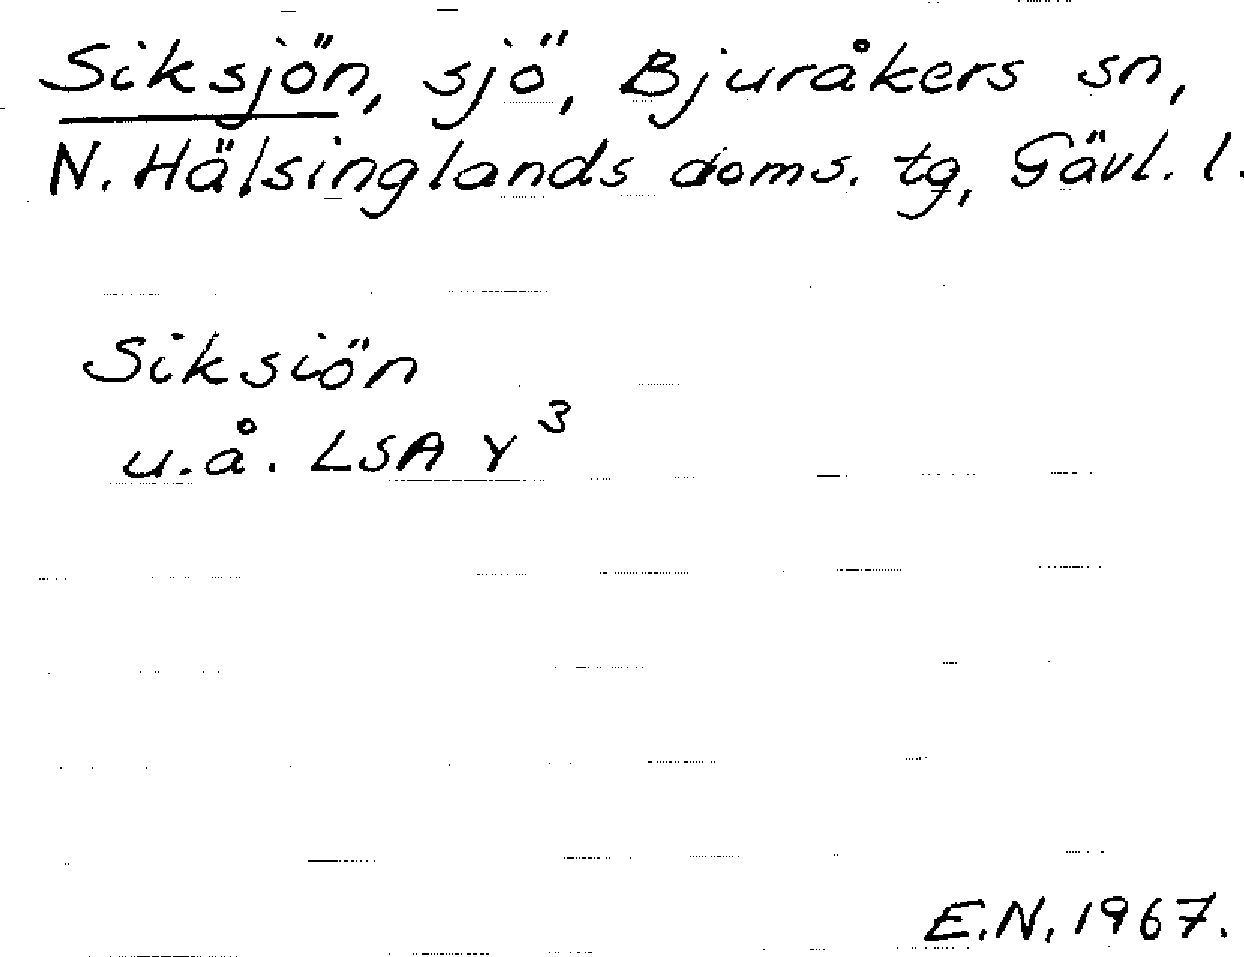 Siksjön, sjö, Bjuråkers sn,
N. Hälsinglands doms. tg, Gävl. l.
Siksiön
u.å. LSA Y³
E.N. 1967.